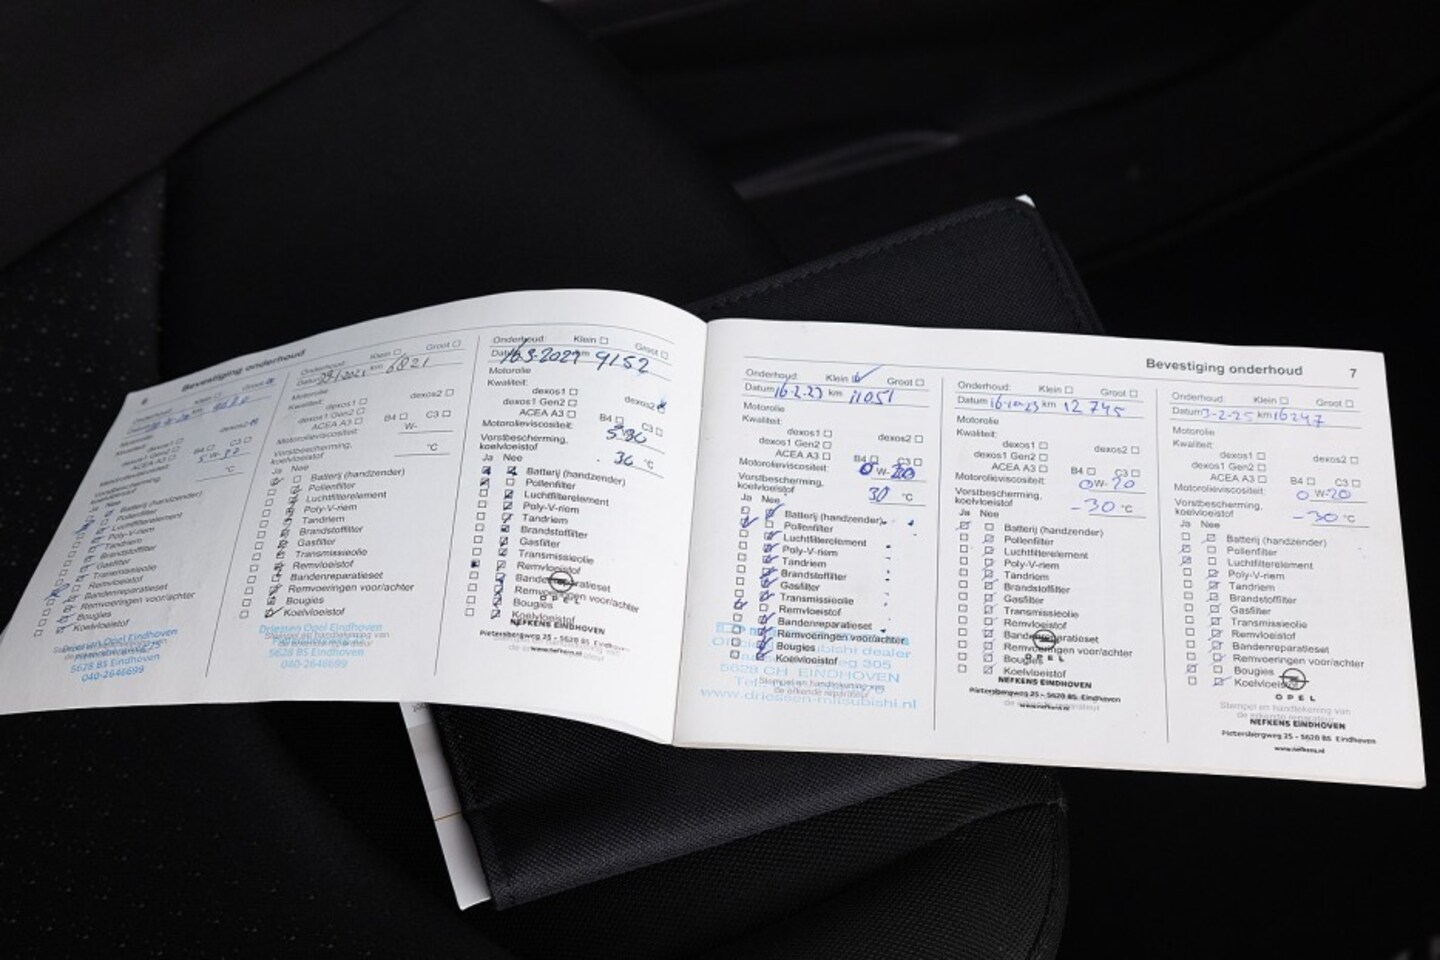 Bevestiging onderhoud
6
Onderhoud: Klein Groot
Datum km
Motorolie
Kwaliteit:
dexos1 dexos2
dexos1 Gen2
ACEA A3 B4 C3
Motorolieviscositeit:
Vorstbescherming,
koelvloeistof °C
Ja Nee
Batterij (handzender)
Pollenfilter
Luchtfilterelement
Poly-V-riem
Tandriem
Brandstoffilter
Gasfilter
Transmissieolie
Remvloeistof
Bandenreparatieset
Remvoeringen voor/achter
Bougies
Koelvloeistof
Driessen Opel Eindhoven
5628 BS Eindhoven
040-2646699
Onderhoud: Klein Groot
Datum 2021 km 6821
Motorolie
Kwaliteit:
dexos1 dexos2
dexos1 Gen2
ACEA A3 B4 C3
Motorolieviscositeit: W-
Vorstbescherming,
koelvloeistof °C
Ja Nee
Batterij (handzender)
Pollenfilter
Luchtfilterelement
Poly-V-riem
Tandriem
Brandstoffilter
Gasfilter
Transmissieolie
Remvloeistof
Bandenreparatieset
Remvoeringen voor/achter
Bougies
Koelvloeistof
Driessen Opel Eindhoven
Stempel en handtekening van
5628 BS Eindhoven
040-2646699
Onderhoud: Klein Groot
Datum km 9152
Motorolie
Kwaliteit:
dexos1 dexos2
dexos1 Gen2
ACEA A3 B4 C3
Motorolieviscositeit:
Vorstbescherming,
koelvloeistof 30 °C
Ja Nee
Batterij (handzender)
Pollenfilter
Luchtfilterelement
Poly-V-riem
Tandriem
Brandstoffilter
Gasfilter
Transmissieolie
Remvloeistof
Bandenreparatieset
Remvoeringen voor/achter
Bougies
Koelvloeistof
OPEL
NEFKENS EINDHOVEN
Pietersbergweg 25 - 5628 BS Eindhoven
www.nefkens.nl
Bevestiging onderhoud 7
Onderhoud: Klein Groot
Datum 16-2-23 km 11051
Motorolie
Kwaliteit:
dexos1 dexos2
dexos1 Gen2
ACEA A3 B4 C3
Motorolieviscositeit: 0 W-20
Vorstbescherming,
koelvloeistof 30 °C
Ja Nee
Batterij (handzender)
Pollenfilter
Luchtfilterelement
Poly-V-riem
Tandriem
Brandstoffilter
Gasfilter
Transmissieolie
Remvloeistof
Bandenreparatieset
Remvoeringen voor/achter
Bougies
Koelvloeistof
dealer
305
5628 CH EINDHOVEN
Stempel en handtekening van
de erkende reparateur
www.driessen-mitsubishi.nl
Onderhoud: Klein Groot
Datum 16-10-23 km 12745
Motorolie
Kwaliteit:
dexos1 dexos2
dexos1 Gen2
ACEA A3 B4 C3
Motorolieviscositeit: 0W-20
Vorstbescherming,
koelvloeistof -30 °C
Ja Nee
Batterij (handzender)
Pollenfilter
Luchtfilterelement
Poly-V-riem
Tandriem
Brandstoffilter
Gasfilter
Transmissieolie
Remvloeistof
Bandenreparatieset
Remvoeringen voor/achter
Bougies
Koelvloeistof
OPEL
NEFKENS EINDHOVEN
Pietersbergweg 25 - 5628 BS Eindhoven
de erkende reparateur
www.nefkens.nl
Onderhoud: Klein Groot
Datum 3-2-25 km 16247
Motorolie
Kwaliteit:
dexos1 dexos2
dexos1 Gen2
ACEA A3 B4 C3
Motorolieviscositeit: 0 W-20
Vorstbescherming,
koelvloeistof -30 °C
Ja Nee
Batterij (handzender)
Pollenfilter
Luchtfilterelement
Poly-V-riem
Tandriem
Brandstoffilter
Gasfilter
Transmissieolie
Remvloeistof
Bandenreparatieset
Remvoeringen voor/achter
Bougies
Koelvloeistof
OPEL
Stempel en handtekening van
de erkende reparateur
NEFKENS EINDHOVEN
Pietersbergweg 25 - 5628 BS Eindhoven
www.nefkens.nl